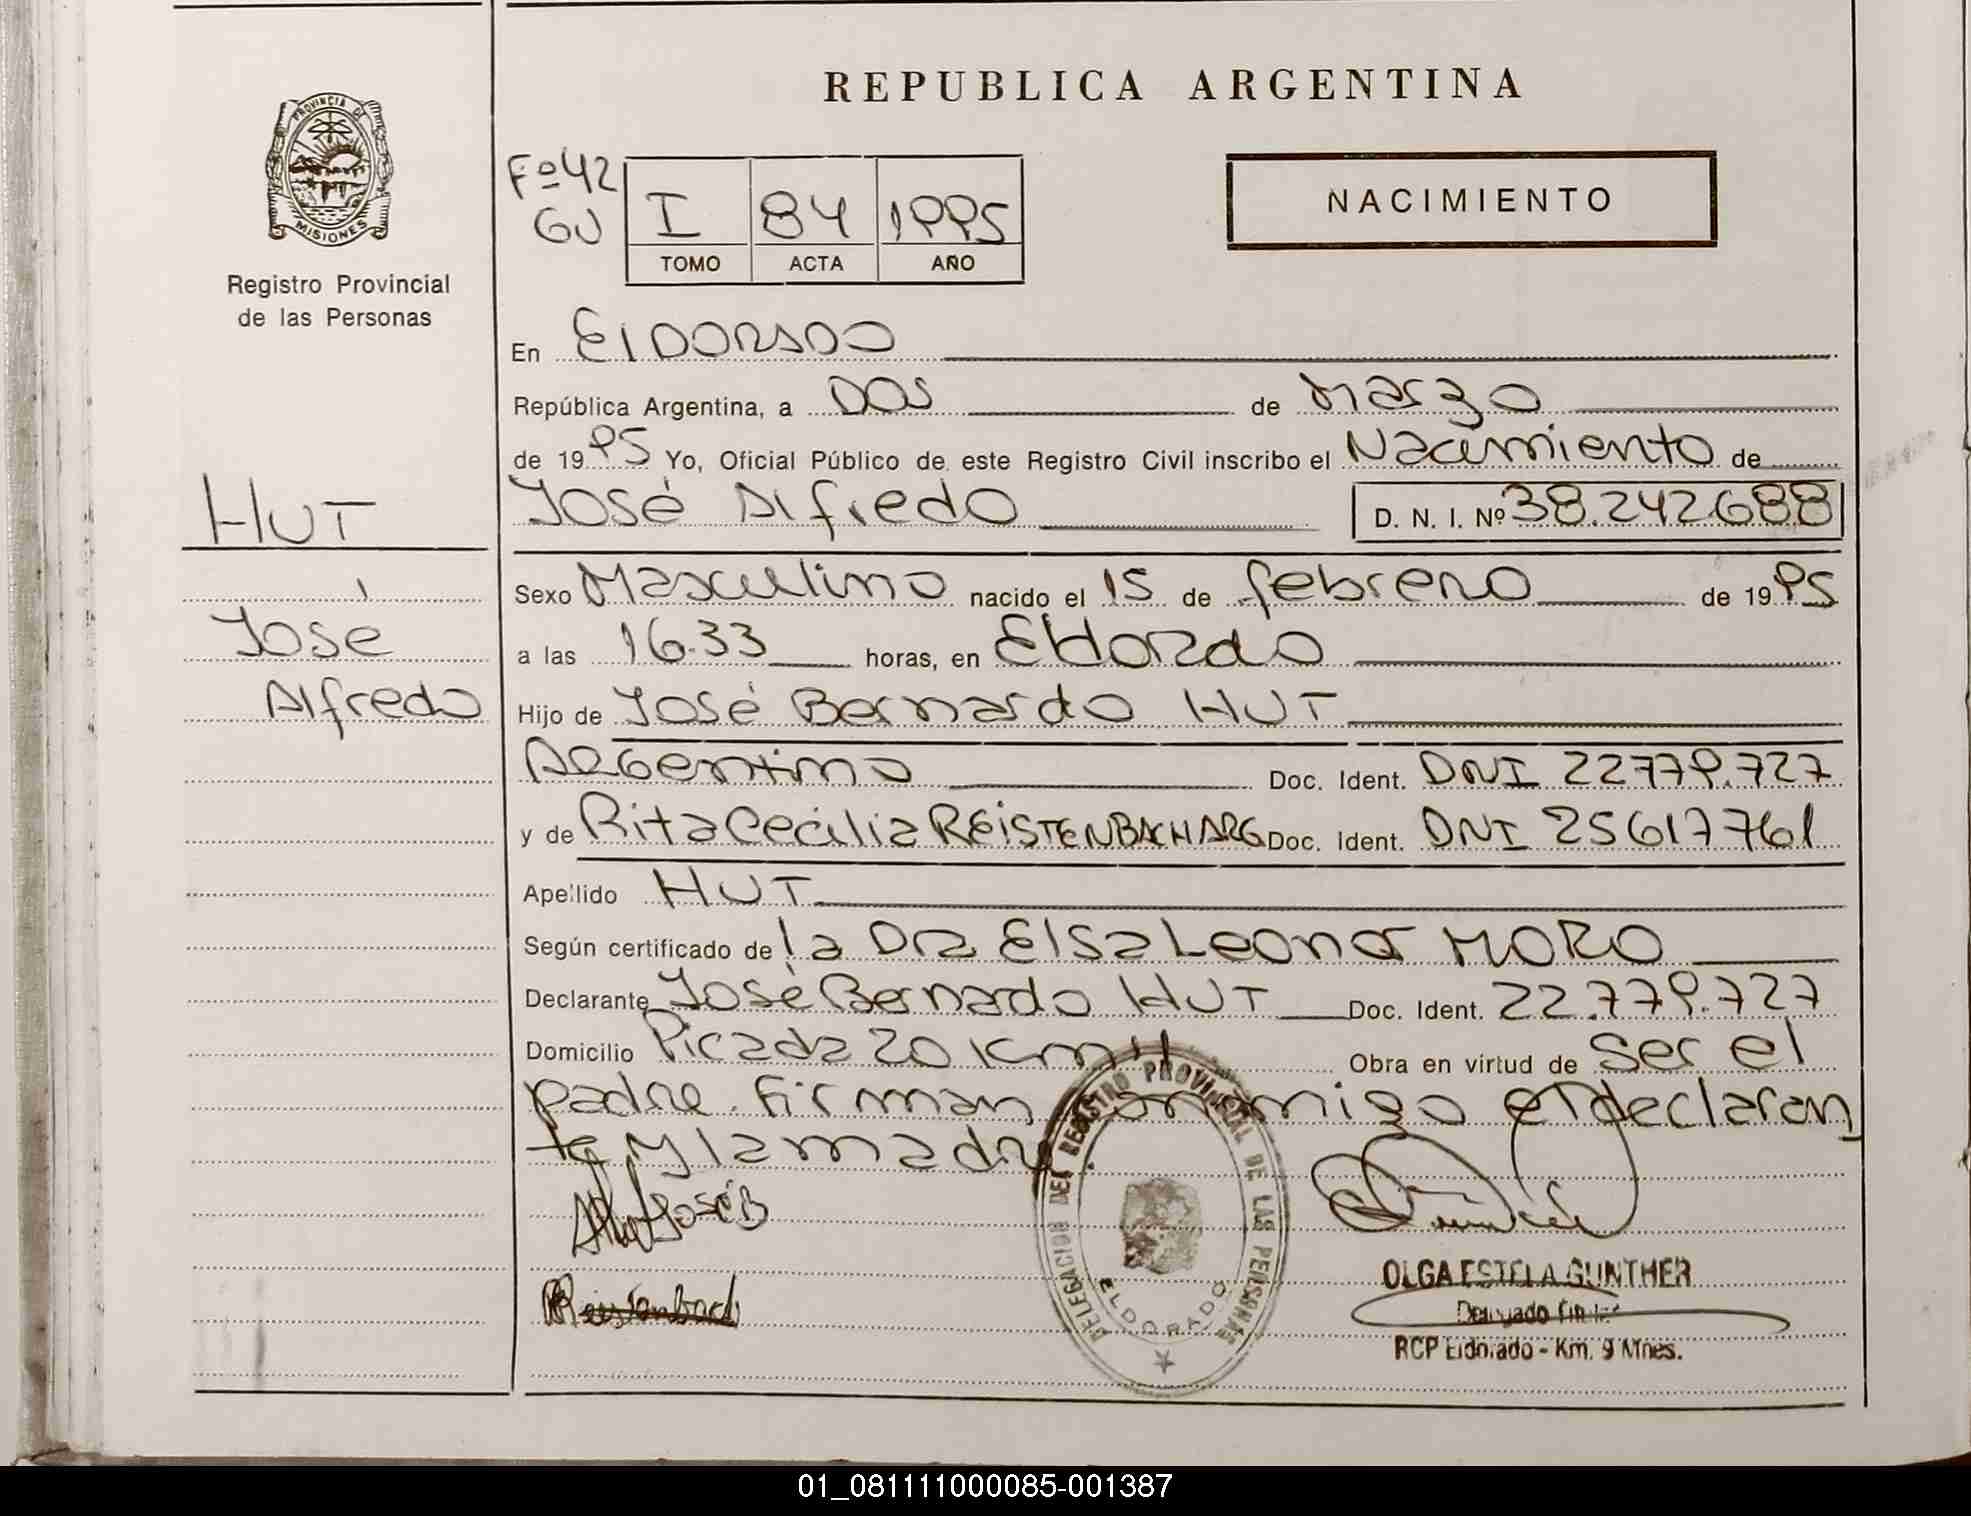 REPUBLICA ARGENTINA
PROVINCIA DE
MISIONES
Registro Provincial
de las Personas
Fº 42
GU
I 84 1995
TOMO ACTA AÑO
NACIMIENTO
HUT
José
Alfredo
En Eldorado
República Argentina, a Dos de Marzo
de 1995 Yo, Oficial Público de este Registro Civil inscribo el Nacimiento de
José Alfredo D. N. I. Nº 38.242.688
Sexo Masculino nacido el 15 de febrero de 1995
a las 16.33 horas, en Eldorado
Hijo de José Bernardo HUT
Argentino Doc. Ident. DNI 22779.727
y de Rita Cecilia REISTENBACH ARG Doc. Ident. DNI 25617761
Apellido HUT
Según certificado de la Dra Elsa Leonor MORO
Declarante José Bernardo HUT Doc. Ident. 22.779.727
Domicilio Picada 20 Km 4 Obra en virtud de ser el
padre. Firman conmigo el declaran
te y la madre
Hut José B
Reistenbach
DELEGACION DEL REGISTRO PROVINCIAL DE LAS PERSONAS
ELDORADO
OLGA ESTELA GUNTHER
RCP Eldorado - Km. 9 Mnes.
01_081111000085-001387